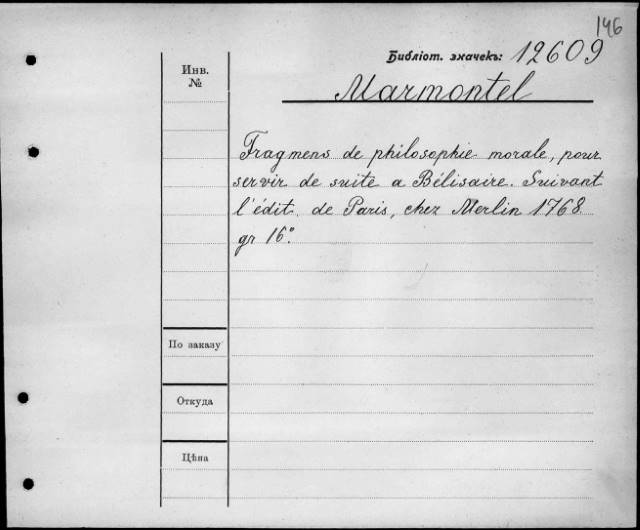 146
Библіот. значекъ: 12609
Инв.
№
Marmontel
Fragmens de philosophie morale, pour
servir de suite a Bélisaire. Suivant
l'édit. de Paris, chez Merlin 1768.
gr 16°.
По заказу
Откуда
Цѣна